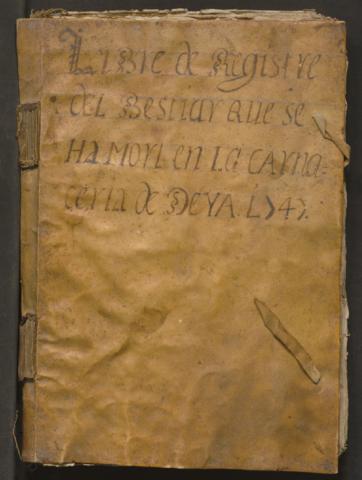 Libre de Registre
del Bestiar que se
Ha Mort en la Carna-
ceria de DEYA 1747